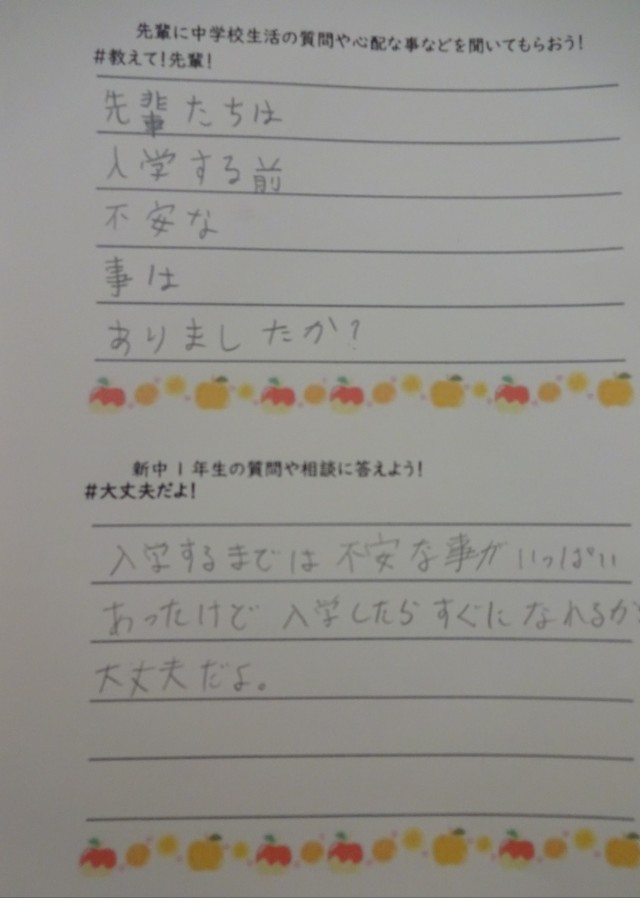 先輩に中学校生活の質問や心配な事などを聞いてもらおう!
#教えて!先輩!
先輩たちは
入学する前
不安な
事は
ありましたか?
新中1年生の質問や相談に答えよう!
#大丈夫だよ!
入学するまでは不安な事がいっぱい
あったけど入学したらすぐになれるか
大丈夫だよ。